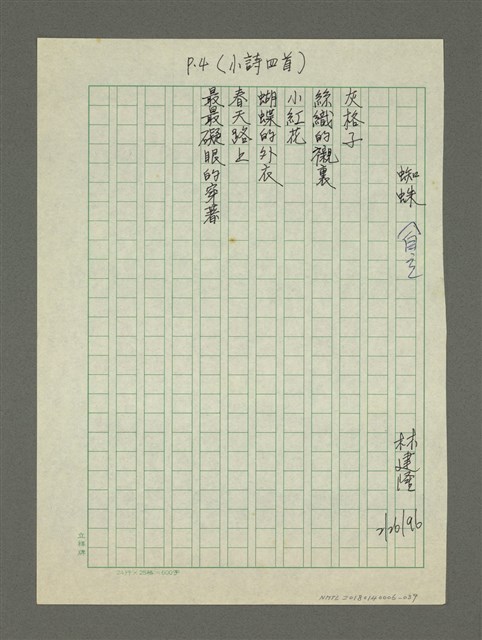 P.4（小詩四首）
蜘蛛
林建隆
2/26/96
灰格子
絲織的襯裏
小紅花
蝴蝶的外衣
春天路上
最最礙眼的穿著
NMTL20180140006-039